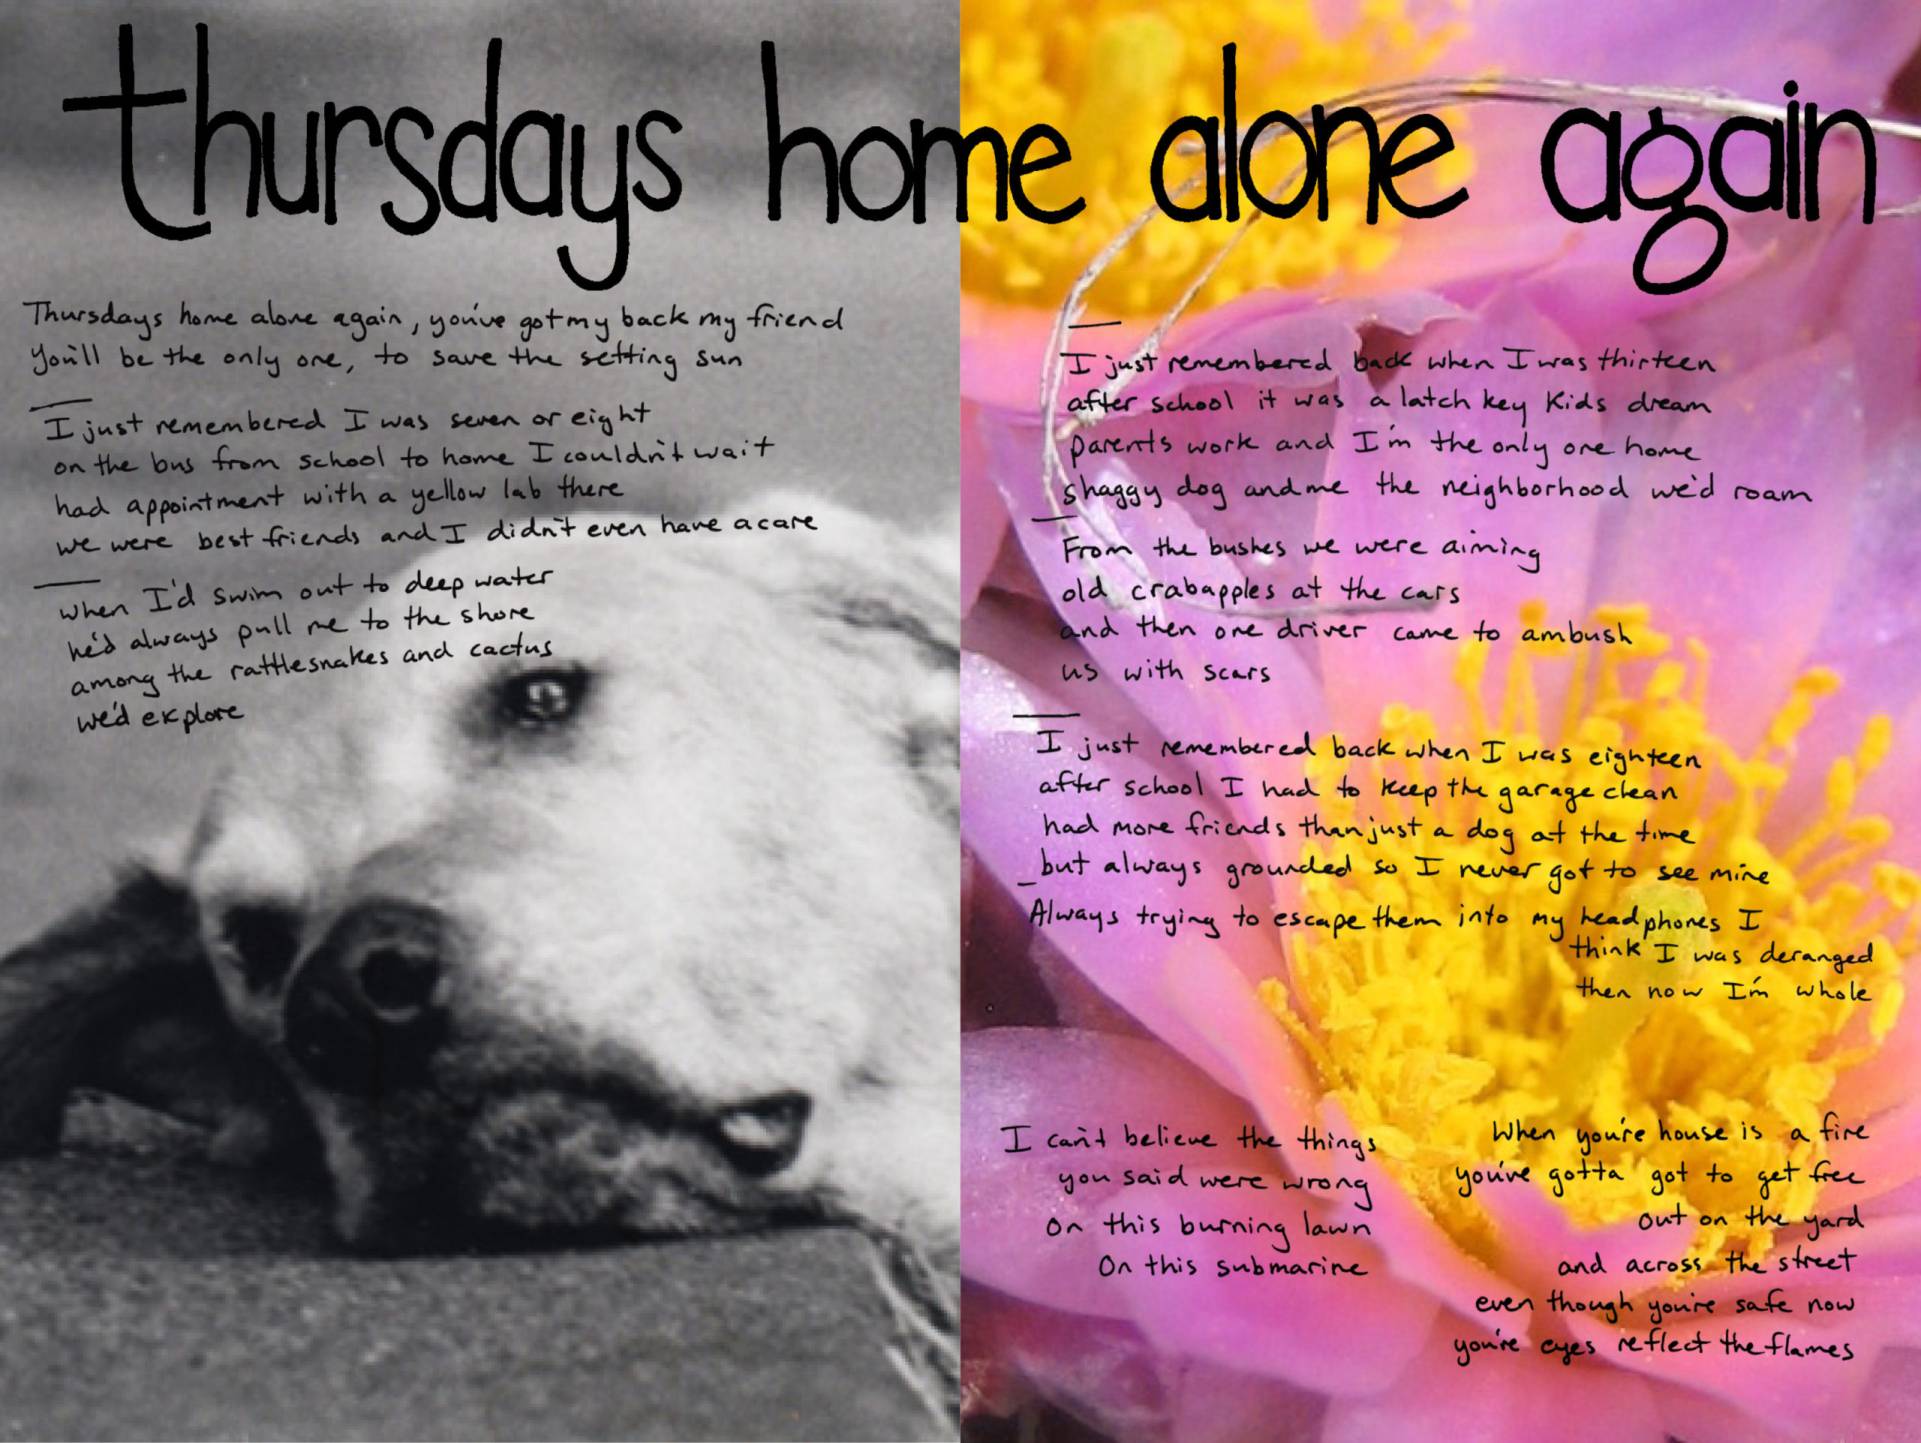 thursdays home alone again
Thursdays home alone again, you've got my back my friend
You'll be the only one, to save the setting sun
I just remembered I was seven or eight
on the bus from school to home I couldn't wait
had appointment with a yellow lab there
we were best friends and I didn't even have a care
when I'd swim out to deep water
he'd always pull me to the shore
among the rattlesnakes and cactus
we'd explore
I just remembered back when I was thirteen
after school it was a latch key kids dream
parents work and I'm the only one home
shaggy dog and me the neighborhood we'd roam
From the bushes we were aiming
old crabapples at the cars
and then one driver came to ambush
us with scars
I just remembered back when I was eighteen
after school I had to keep the garage clean
had more friends than just a dog at the time
but always grounded so I never got to see mine
Always trying to escape them into my headphones I
think I was deranged
then now I'm whole
I can't believe the things
you said were wrong
on this burning lawn
On this submarine
When you're house is a fire
you've gotta got to get free
out on the yard
and across the street
even though you're safe now
you're eyes reflect the flames